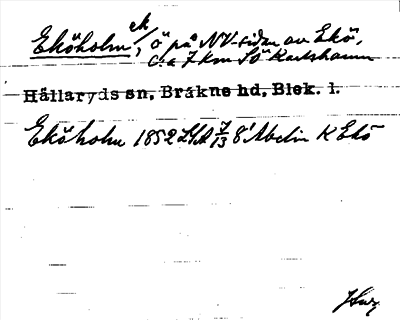 Eköholm, ek, ö på NV-sidan av Ekö,
c:a 7 km SÖ Karlshamn
Hällaryds sn, Bräkne hd, Blek. l.
Eköholm 1852 LSA 7/13 8' Abelin K Ekö